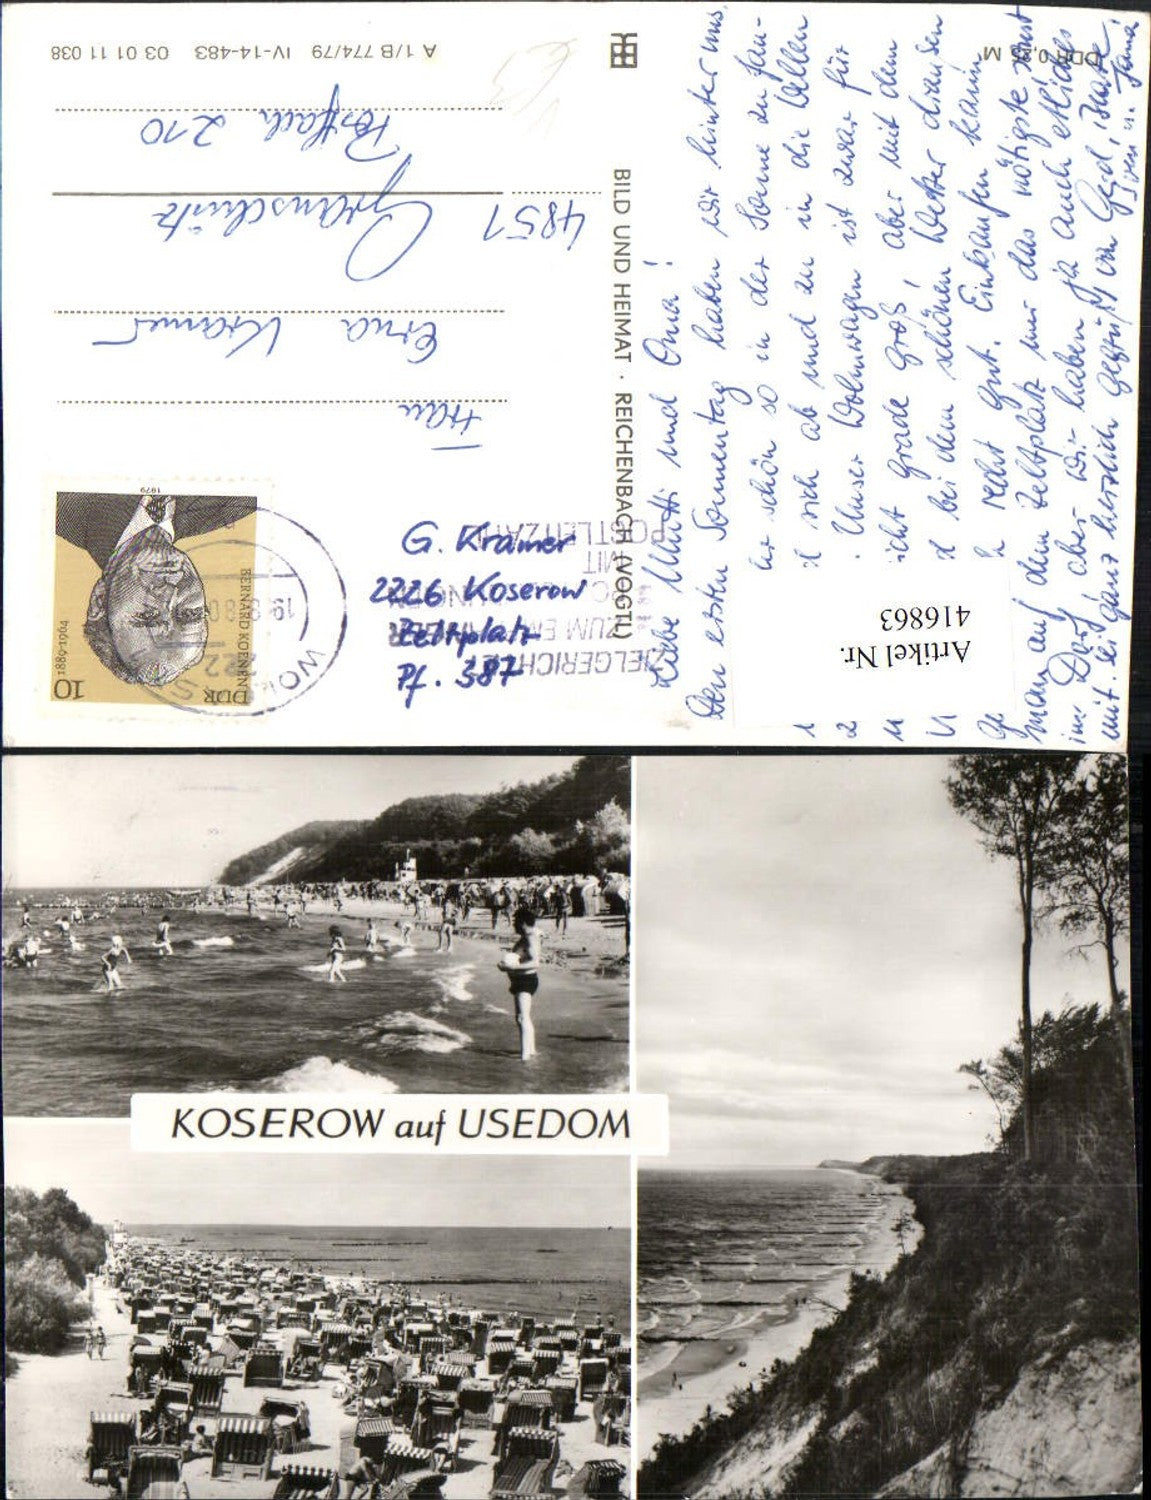 Liebe Mutti und Oma!
Den ersten Sonnentag haben wir hinter uns,
schön so in der Sonne zu fau-
sich ab und zu in die Wellen
Unser Wohnwagen ist zwar für
icht grade groß, aber mit dem
bei dem schönen Wetter draußen
recht gut. Einkaufen kann
man auf dem Zeltplatz nur das nötigste, sonst
ins Dorf, aber wir haben ja auch etliches
mit. Sei ganz herzlich gegrüßt von Gerd,
u. Jana
DDR 0,25 M
BILD UND HEIMAT · REICHENBACH (VOGTL)
A 1/B 774/79 IV-14-483 03 01 11 038
Frau
Erna Kramer
4851 Granschütz
Postfach 210
G. Kramer
2226 Koserow
Zeltplatz
Pf. 387
10
1889-1964
BERNARD KOENEN
DDR
1979
ZIELGERICHTET
ZUM EMPFÄNGER
MIT
POSTLEITZAHL
Artikel Nr.
416863
KOSEROW auf USEDOM